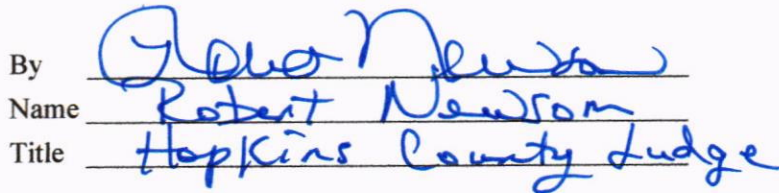 By Robert Newsom
Name Robert Newsom
Title Hopkins County Judge